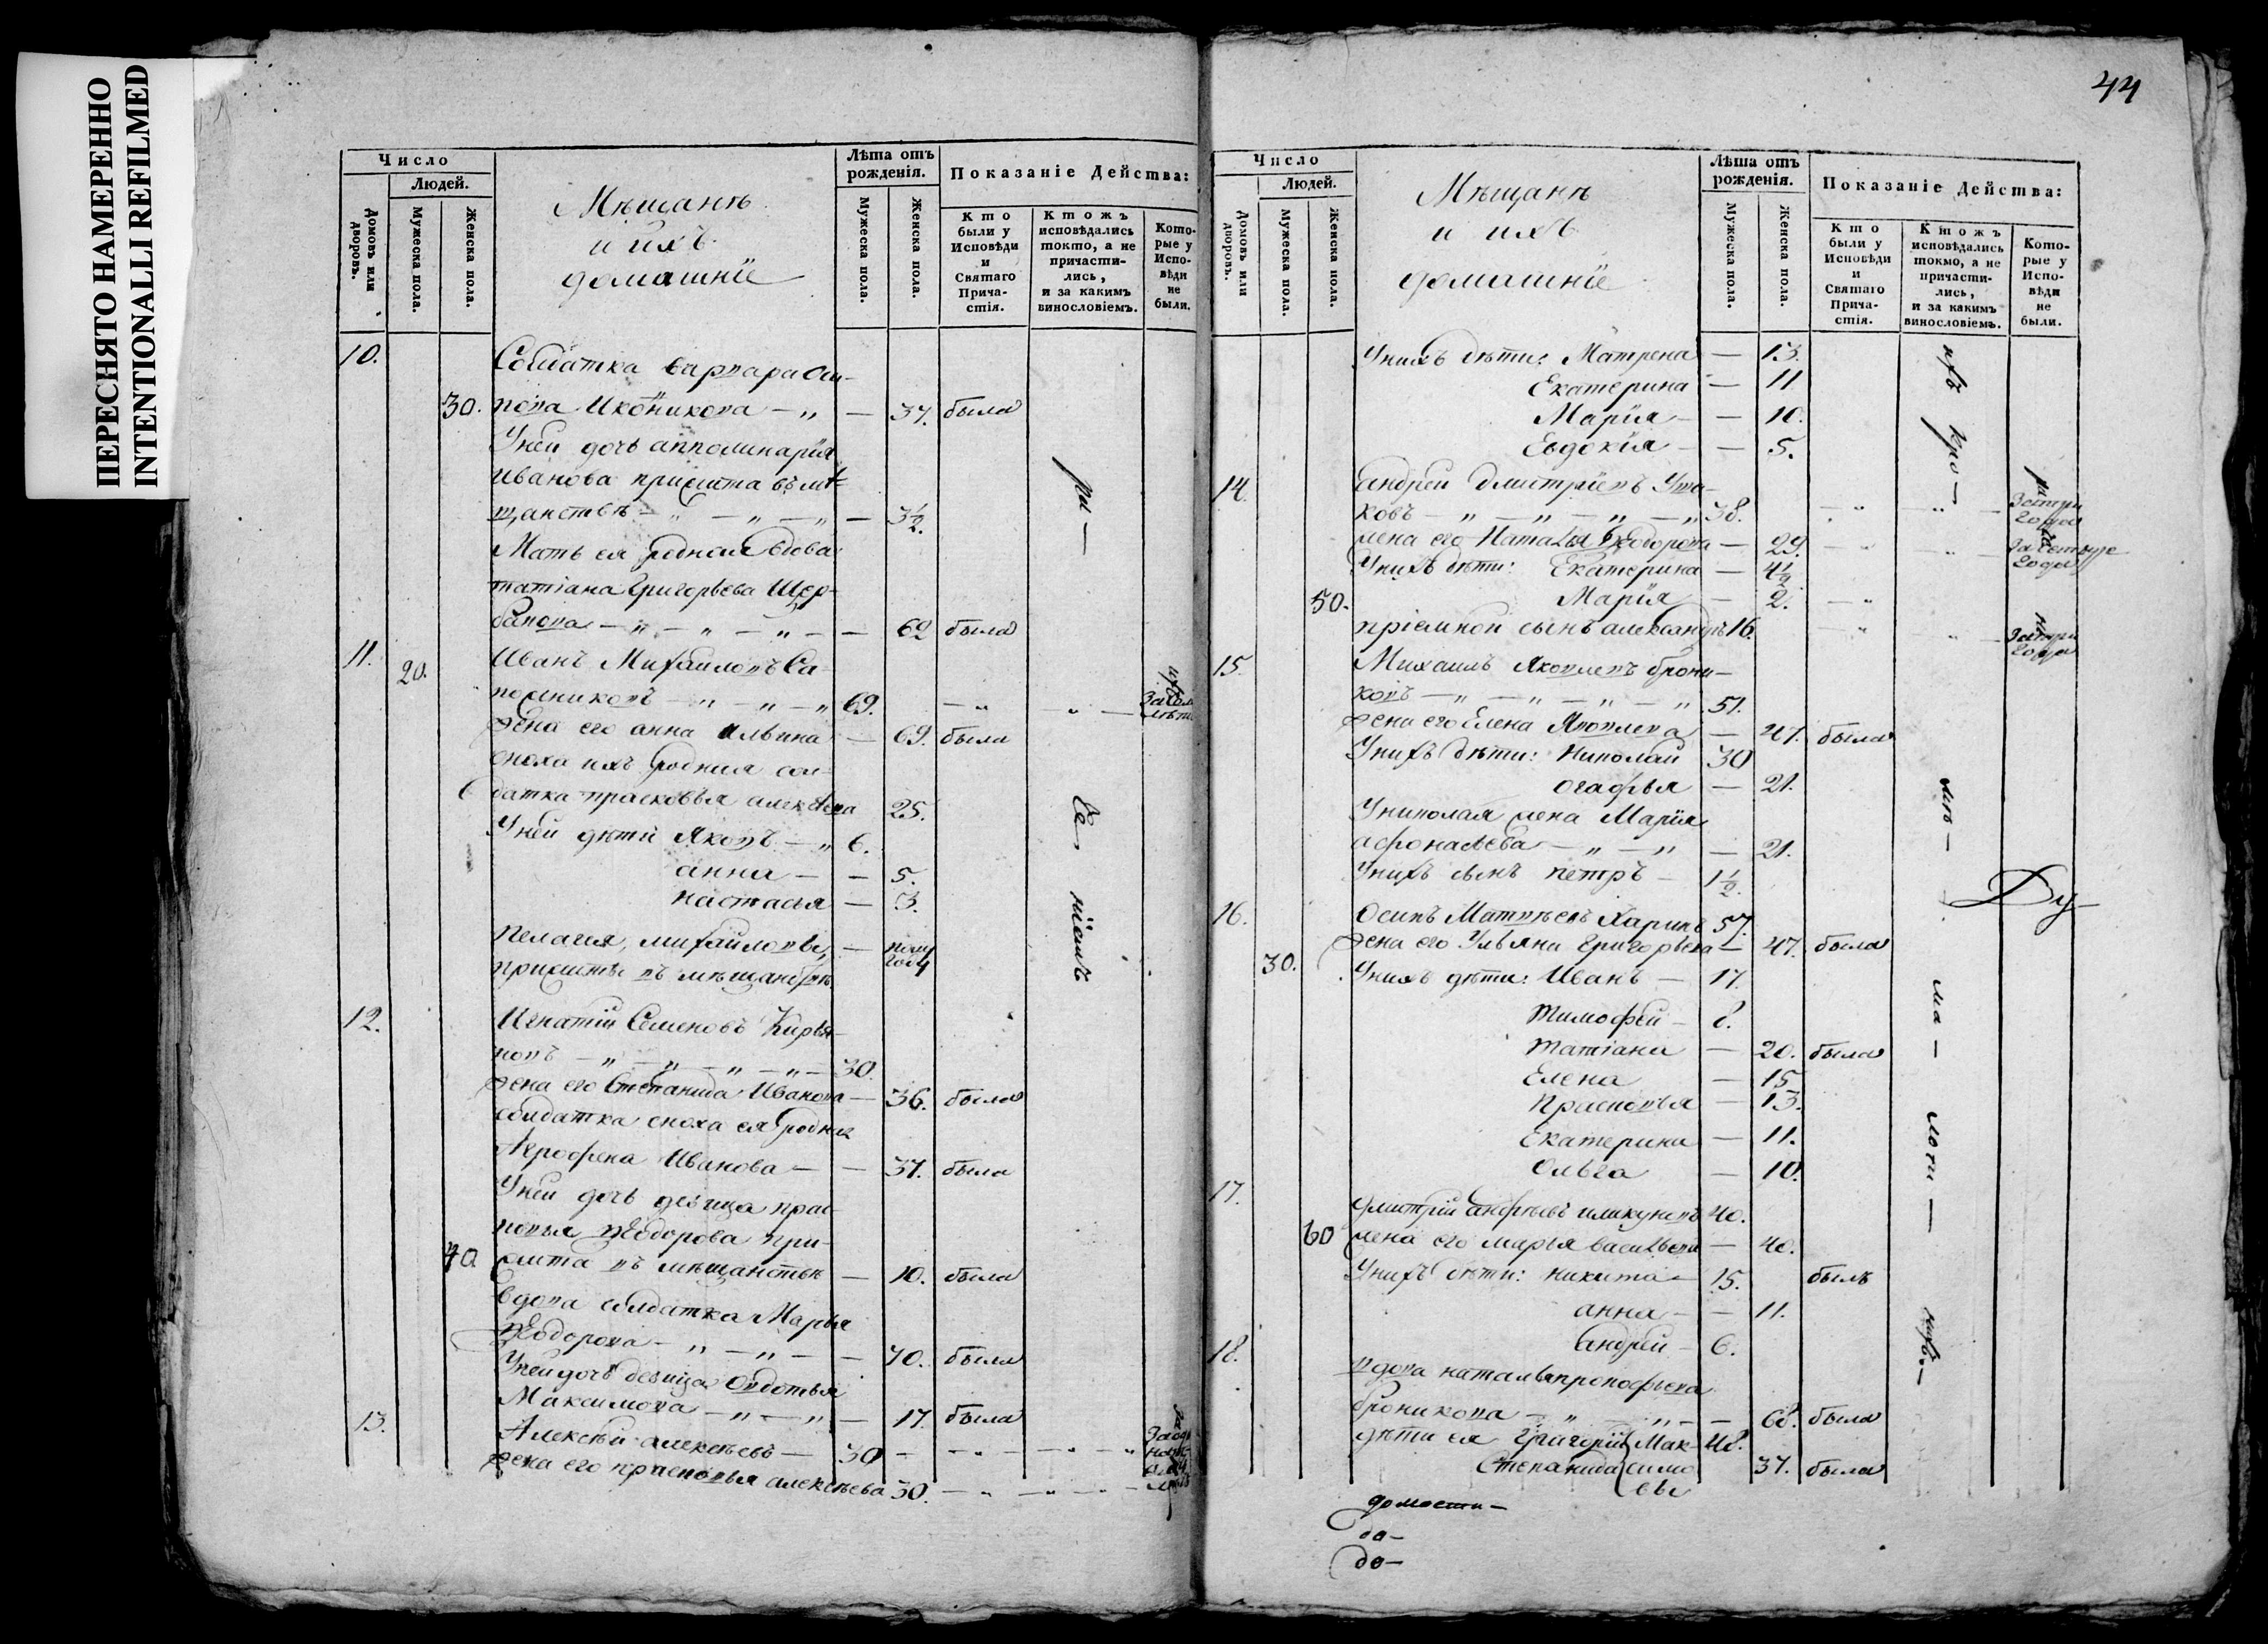 ПЕРЕСНЯТО НАМЕРЕННО
INTENTIONALLI REFILMED
Число
Людей.
Домовъ или дворовъ.
Мужеска пола.
Женска пола.
Мѣщанъ
и ихъ
домашніе
Лѣта отъ рожденія.
Мужеска пола.
Женска пола.
Показаніе Действа:
Кто были у Исповѣди и Святаго Прича-стія.
Ктожъ исповѣдались токмо, а не причасти-лись, и за какимъ винословіемъ.
Кото-рые у Испо-вѣди не были.
10. Солдатка Варвара Оси-
30. пова Иконикова — „ — 37. была
Уней дочь Апполинарія
Иванова прижита въ мѣ-
щанствѣ — „ — „ — „ — 3½.
Мать ея родная вдова
Татіана Григорьева Щер-
бакова — „ — „ — „ — — 62 была
11. 20. Иванъ Михайловъ Са-
пожниковъ — „ — „ — „ 69.
жена его Анна Ильина — 69. была
сноха ихъ родная сол-
датка Прасковья Алексѣева 25.
Уней дѣти Яковъ — „ 6.
Анна — — 5.
Настасья — 3.
Пелагея, Михайловы, — полу года
прижиты въ мѣщанствѣ
12. Игнатій Семеновъ Кирья-
новъ — „ — „ — „ — „ — 30.
жена его Степанида Иванова — 36. была
солдатка сноха ея родная
Агрофена Иванова — — 37. была
Уней дочь девица Прас-
ковья Ѳеодорова при-
40 жита въ мѣщанствѣ — 10. была
вдова солдатка Марья
Ѳеодорова — „ — „ — — 70. была
Уней дочь девица Овдотья
Максимова — „ — „ — 17. была
13. Алексѣй Алексѣевъ — 30
жена его Прасковья Алексѣева 30.
ри —
че
ніемъ
44
Число
Людей.
Домовъ или дворовъ.
Мужеска пола.
Женска пола.
Мѣщанъ
и ихъ
домашніе
Лѣта отъ рожденія.
Мужеска пола.
Женска пола.
Показаніе Действа:
Кто были у Исповѣди и Святаго Прича-стія.
Ктожъ исповѣдались токмо, а не причасти-лись, и за какимъ винословіемъ.
Кото-рые у Испо-вѣди не были.
Унихъ дѣти: Матрена — 13.
Екатерина — 11
Марія — — 10.
Евдокія — — 5.
14. Андрей Дмитріевъ Уша-
ковъ — „ — „ — „ — „ 38. три года
жена его Наталья Ѳеодорова — 29.
Унихъ дѣти: Екатерина — 4½
50. Марія — 2.
пріемной сынъ Александръ 16. года
15. Михаилъ Яковлевъ Брони-
ковъ — „ — „ — „ — „ 51.
жена его Елена Яковлева — 47. была
Унихъ дѣти: Николай 30
Огафья — 21.
Униколая жена Марія
Афонасьева — „ — „ — 21.
Унихъ сынъ Петръ — 1½.
16. Осипъ Матвѣевъ Харинъ 57.
жена его Ульяна Григорьева — 47. была
30. Унихъ дѣти: Иванъ — 17.
Тимофей — 8.
Татіана — 20. была
Елена — 15
Прасковья — 13.
Екатерина — 11.
Ольга — 10.
17. Дмитрій 40.
60 жена его Марья Васильева — 40.
Унихъ дѣти: Никита — 15. былъ
Анна — — 11.
Андрей — 6.
18. вдова Наталья Прокофьева
Броникова — „ — „ — — 68. была
дѣти ея Григорій Мак- 48.
Степанида симо 37. была
вы
Ду-
ма —
домости —
до —
до —